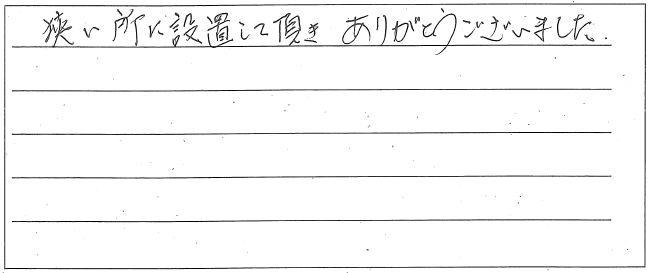 狭い所に設置して頂き ありがとうございました.